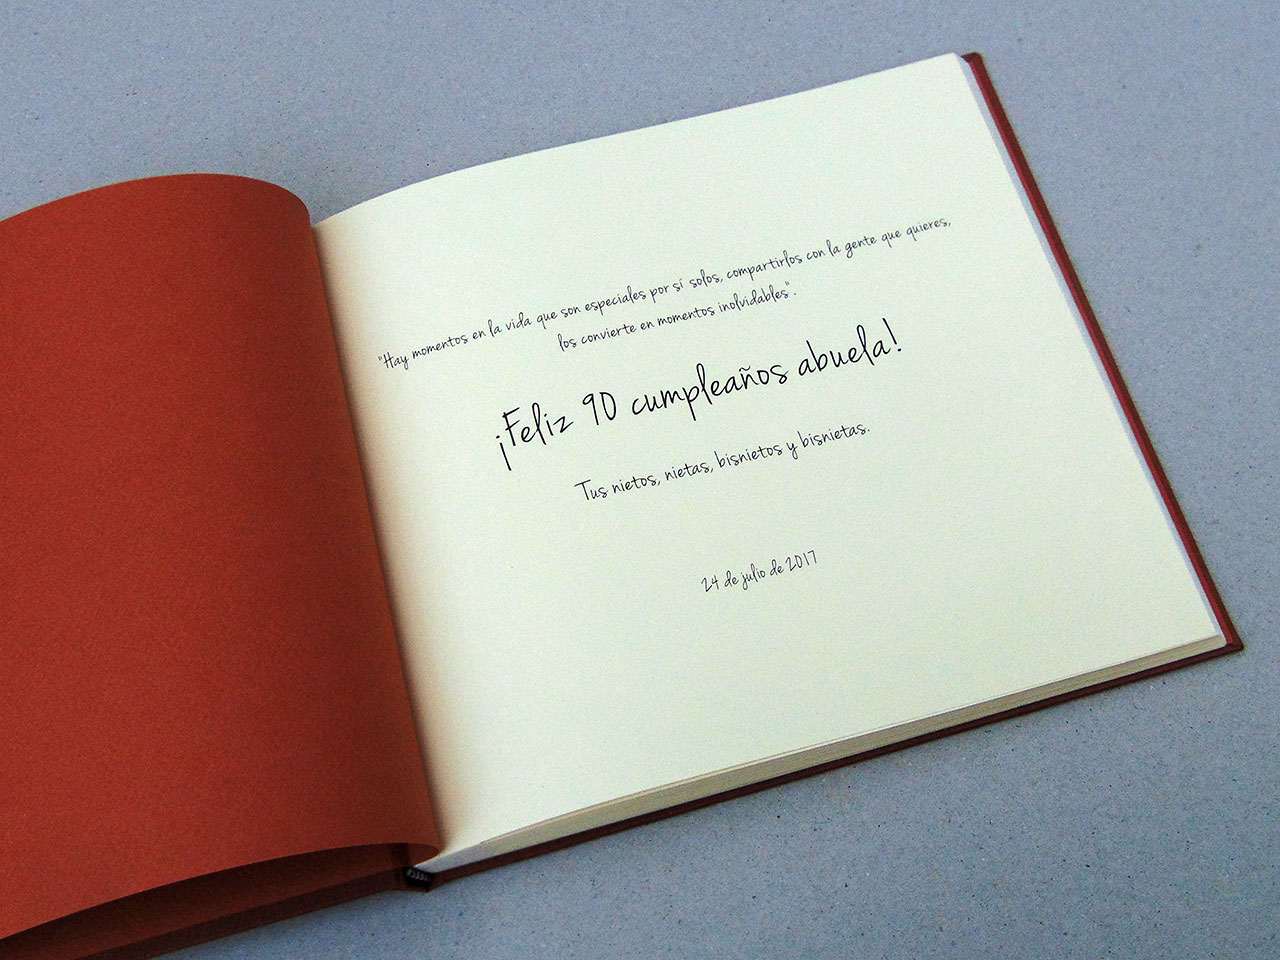 "Hay momentos en la vida que son especiales por sí solos, compartirlos con la gente que quieres,
los convierte en momentos inolvidables".
¡Feliz 90 cumpleaños abuela!
Tus nietos, nietas, bisnietos y bisnietas.
24 de julio de 2017